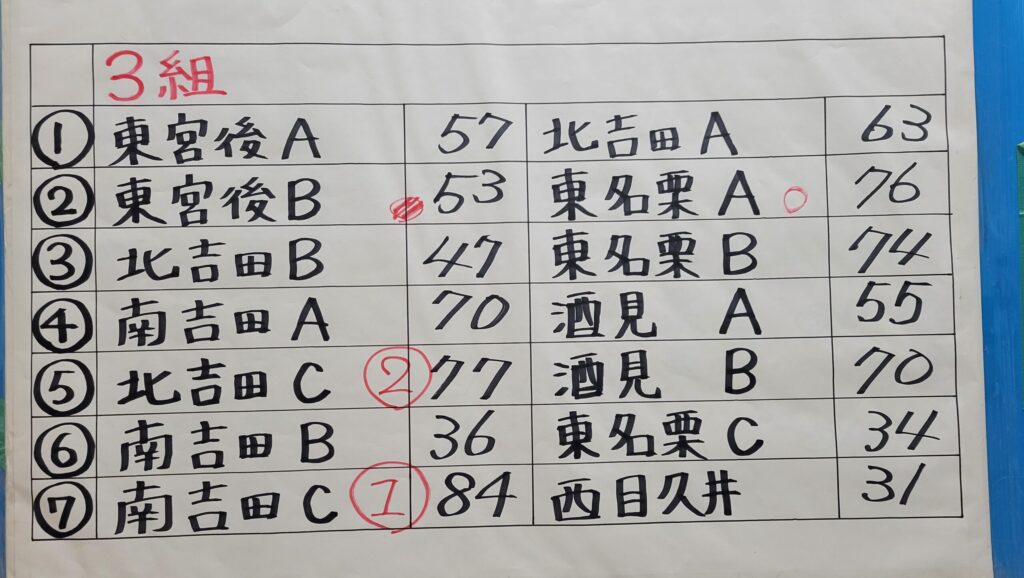 3組
① 東宮後A 57 北吉田A 63
② 東宮後B 53 東名栗A ○ 76
③ 北吉田B 47 東名栗B 74
④ 南吉田A 70 酒見 A 55
⑤ 北吉田C ② 77 酒見 B 70
⑥ 南吉田B 36 東名栗C 34
⑦ 南吉田C ① 84 西目久井 31